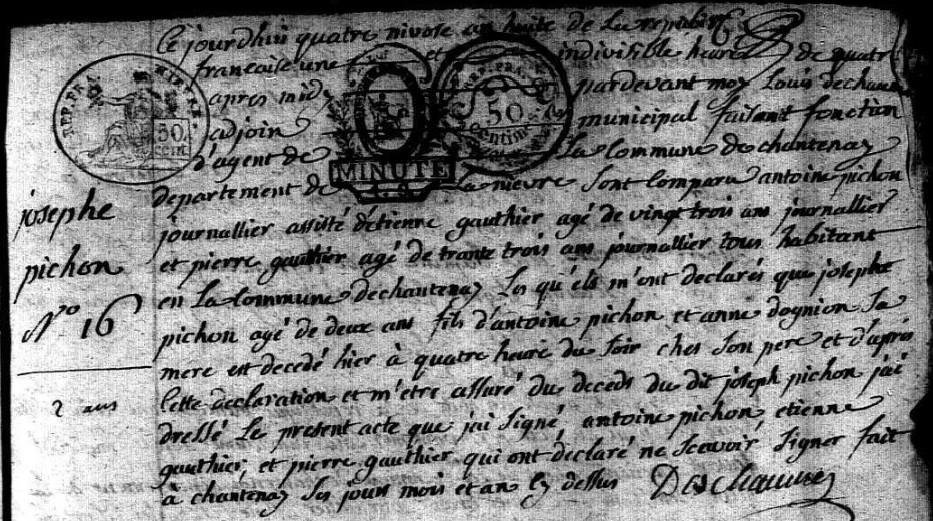 Ce jourdhui quatre nivose an huite de La republiq
francaise une et indivisible heure de quatre
apres midy pardevant moy Louis dechaume
adjoin municipal faisant fonction
d'agent de La Commune de chantenay
departement de La nievre sont Comparu antoine pichon
journallier assisté d'étienne gauthier agé de vingt trois ans journallier
et pierre gauthier agé de trante trois ans journallier tous habitant
en La Commune de chantenay Les qu'els m'ont declarés que josephe
pichon agé de deux ans fils d'antoine pichon et anne dognion Sa
mere est decedé hier à quatre heure du soir ches son pere et d'aprés
Cette declaration et m'etre assuré du deceds du dit joseph pichon j'ai
dressé Le present acte que j'ai signé, antoine pichon etienne
gauthier, et pierre gauthier qui ont déclaré ne scavoir signer fait
à chantenay Ses jours mois et an Cy dessus Deschaumes
josephe
pichon
N.o 16
2 ans
REP. FRA.
50
cent.
MINUTE
REP. FRA.
50
Centimes